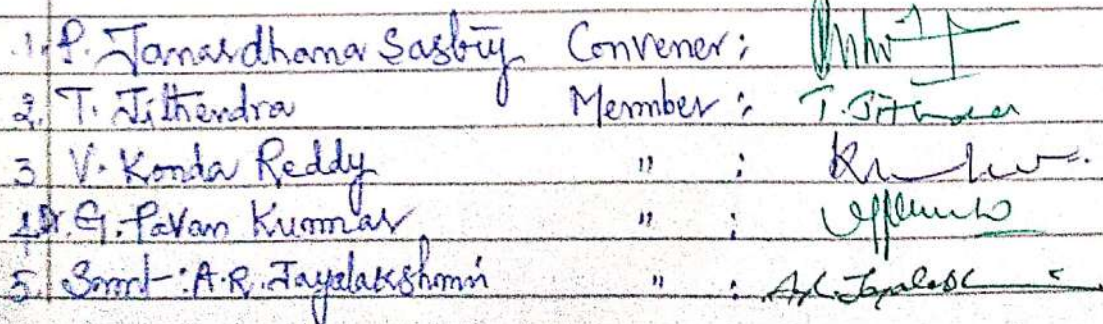 1. P. Janardhana Sastry Convener :
2. T. Jithendra Member : T. Jithendra
3 V. Konda Reddy " :
4 Dr. G. Pavan Kummar " :
5. Smt : A.R. Jayalakshmi " : A.R. Jayalakshmi